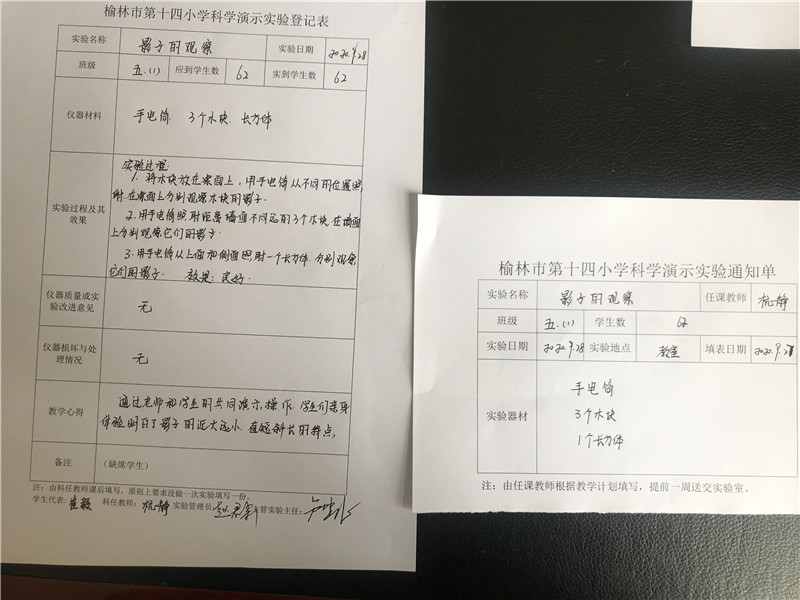 榆林市第十四小学科学演示实验登记表
实验名称 影子的观察 实验日期 2020.9.28
班级 五.(1) 应到学生数 62 实到学生数 62
仪器材料 手电筒 3个木块. 长方体
实验过程及其效果
实验过程:
1. 将木块放在桌面上,用手电筒从不同的位置照
射.在桌面上分别观察木块的影子.
2.用手电筒照射距离墙面不同远的3个木块.在墙面
上分别观察它们的影子.
3.用手电筒从上面和侧面照射一个长方体.分别观察
它们的影子. 效果: 良好.
仪器质量或实验改进意见 无
仪器损坏与处理情况 无
教学心得
通过老师和学生的共同演示,操作.学生们亲身
体验明白了影子的近大远小.直短斜长的特点,
备注 (缺席学生)
注:由科任教师课后填写,原则上要求没做一次实验填写一份。
学生代表: 科任教师:杭静 实验管理员: 管实验主任:
榆林市第十四小学科学演示实验通知单
实验名称 影子的观察 任课教师 杭静
班级 五.(1) 学生数 62
实验日期 2020.9.28 实验地点 教室 填表日期 2020.9.21
实验器材
手电筒
3个木块
1个长方体
注:由任课教师根据教学计划填写,提前一周送交实验室。